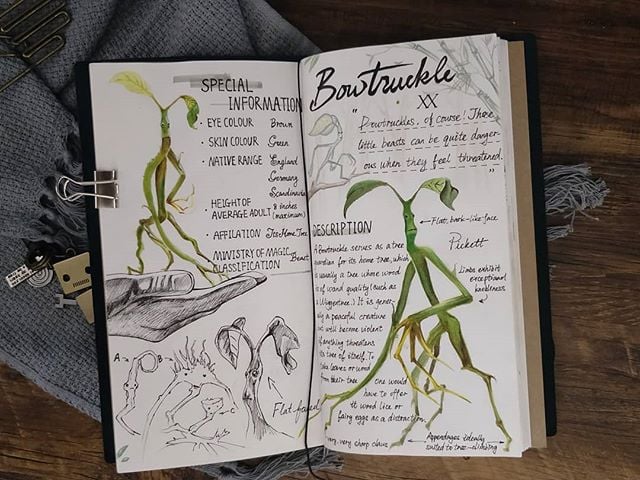 SPECIAL
INFORMATION
• EYE COLOUR Brown
• SKIN COLOUR Green
• NATIVE RANGE England
Germany
Scandinavia
• HEIGHT OF 8 inches
AVERAGE ADULT (maximum)
• AFFILATION Its Home Tree
MINISTRY OF MAGIC Beast
CLASSIFICATION
A→
B→
C
Flat-faced
Bowtruckle
XX
"Bowtruckles, of course! These
little beasts can be quite danger-
ous when they feel threatened."
DESCRIPTION
A Bowtruckle serves as a tree
guardian for its home tree, which
is usually a tree whose wood
is of wand quality (such as
a Wiggentree.) It is gener-
ally a peaceful creature
but will become violent
if anything threatens
its tree or itself. To
take leaves or wood
from their tree
one would
have to offer
it wood lice or
fairy eggs as a distraction.
Flat, bark-like face
Pickett
Limbs exhibit
exceptional
very, very sharp claws
Appendages ideally
suited to tree-climbing